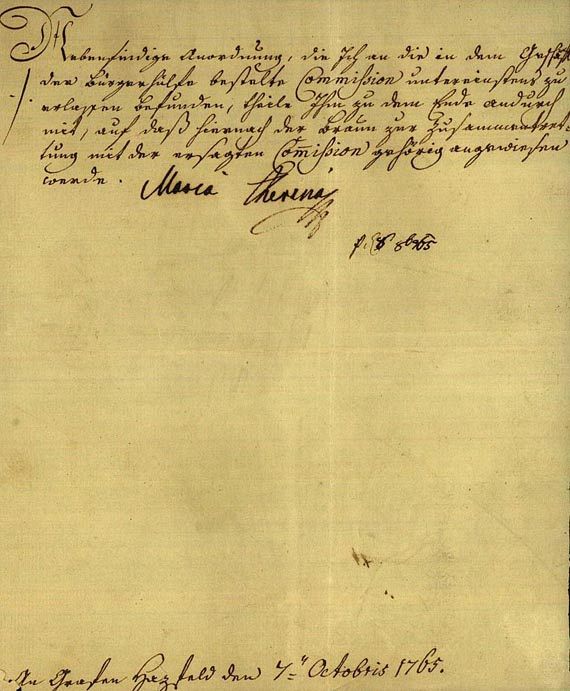 Nebenfindige Anordnung, die Ich an die in dem Geschäft
der Bürgerhülfe bestelte Commission untereinstens zu
erlassen befunden, theile Ihm zu dem Ende andurch
mit, auf daß hiernach der Braun zur Zusammentret-
tung mit der ersagten Comission gehörig angewiesen
werde.
Maria Theresia
8br 765
An Grafen Hazfeld den 7ten Octobris 1765.